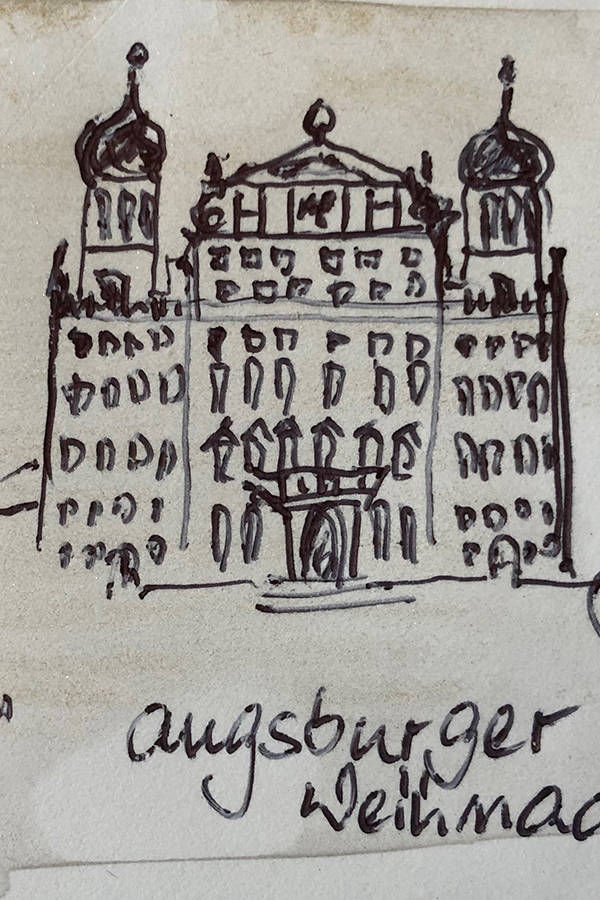 augsburger
Weihnac